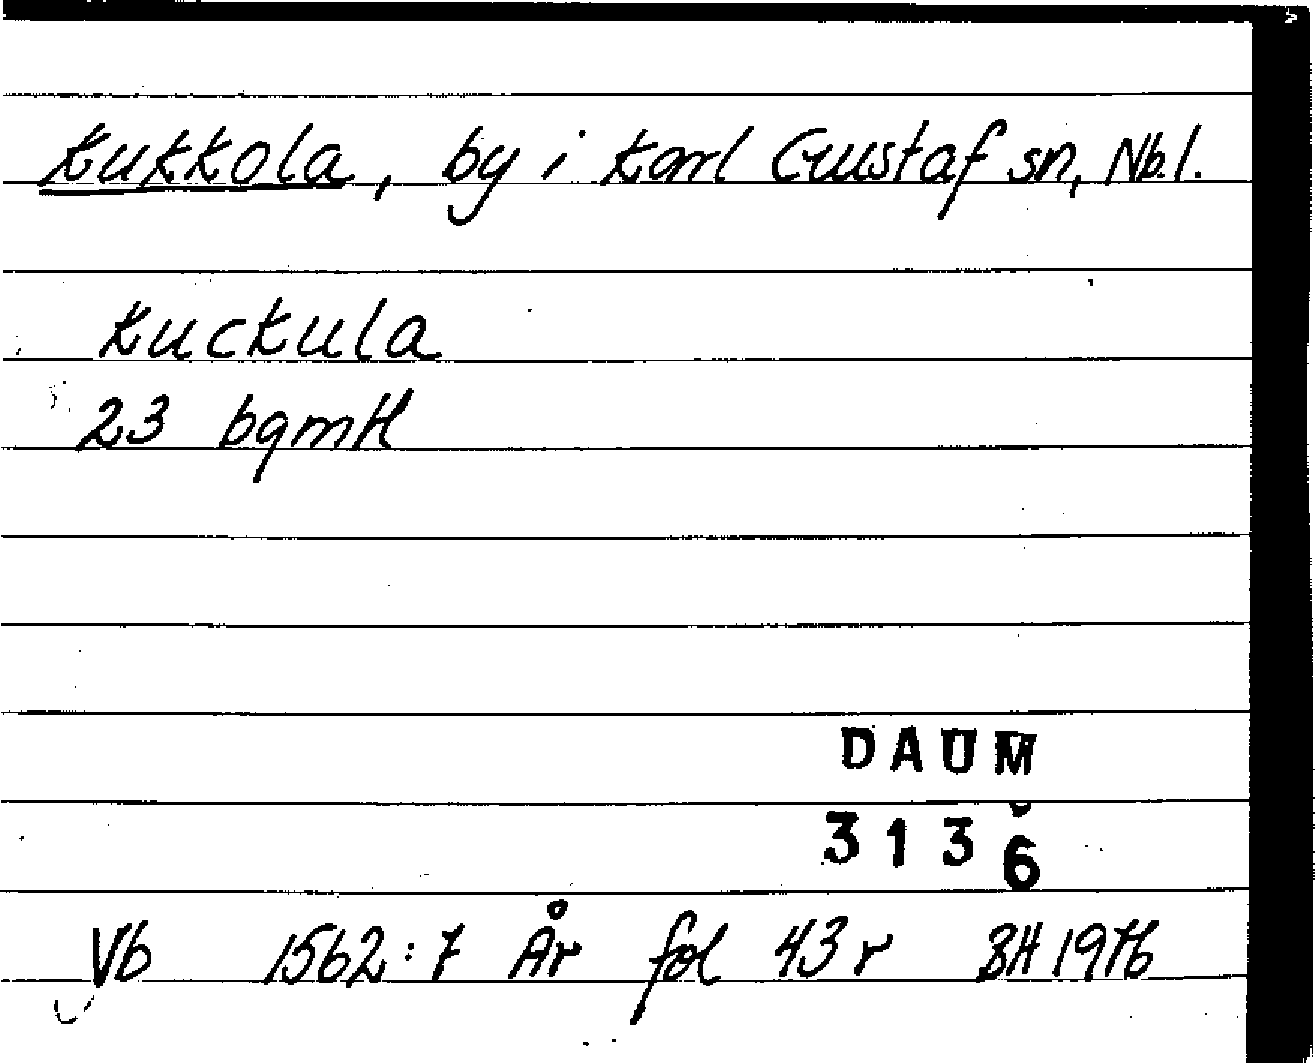 Kukkola, by i Karl Gustaf sn, Nb.l.
Kuckula
23 bgmH
DAUM
3136
Vb 1562:7 År fol 43r BH 1976